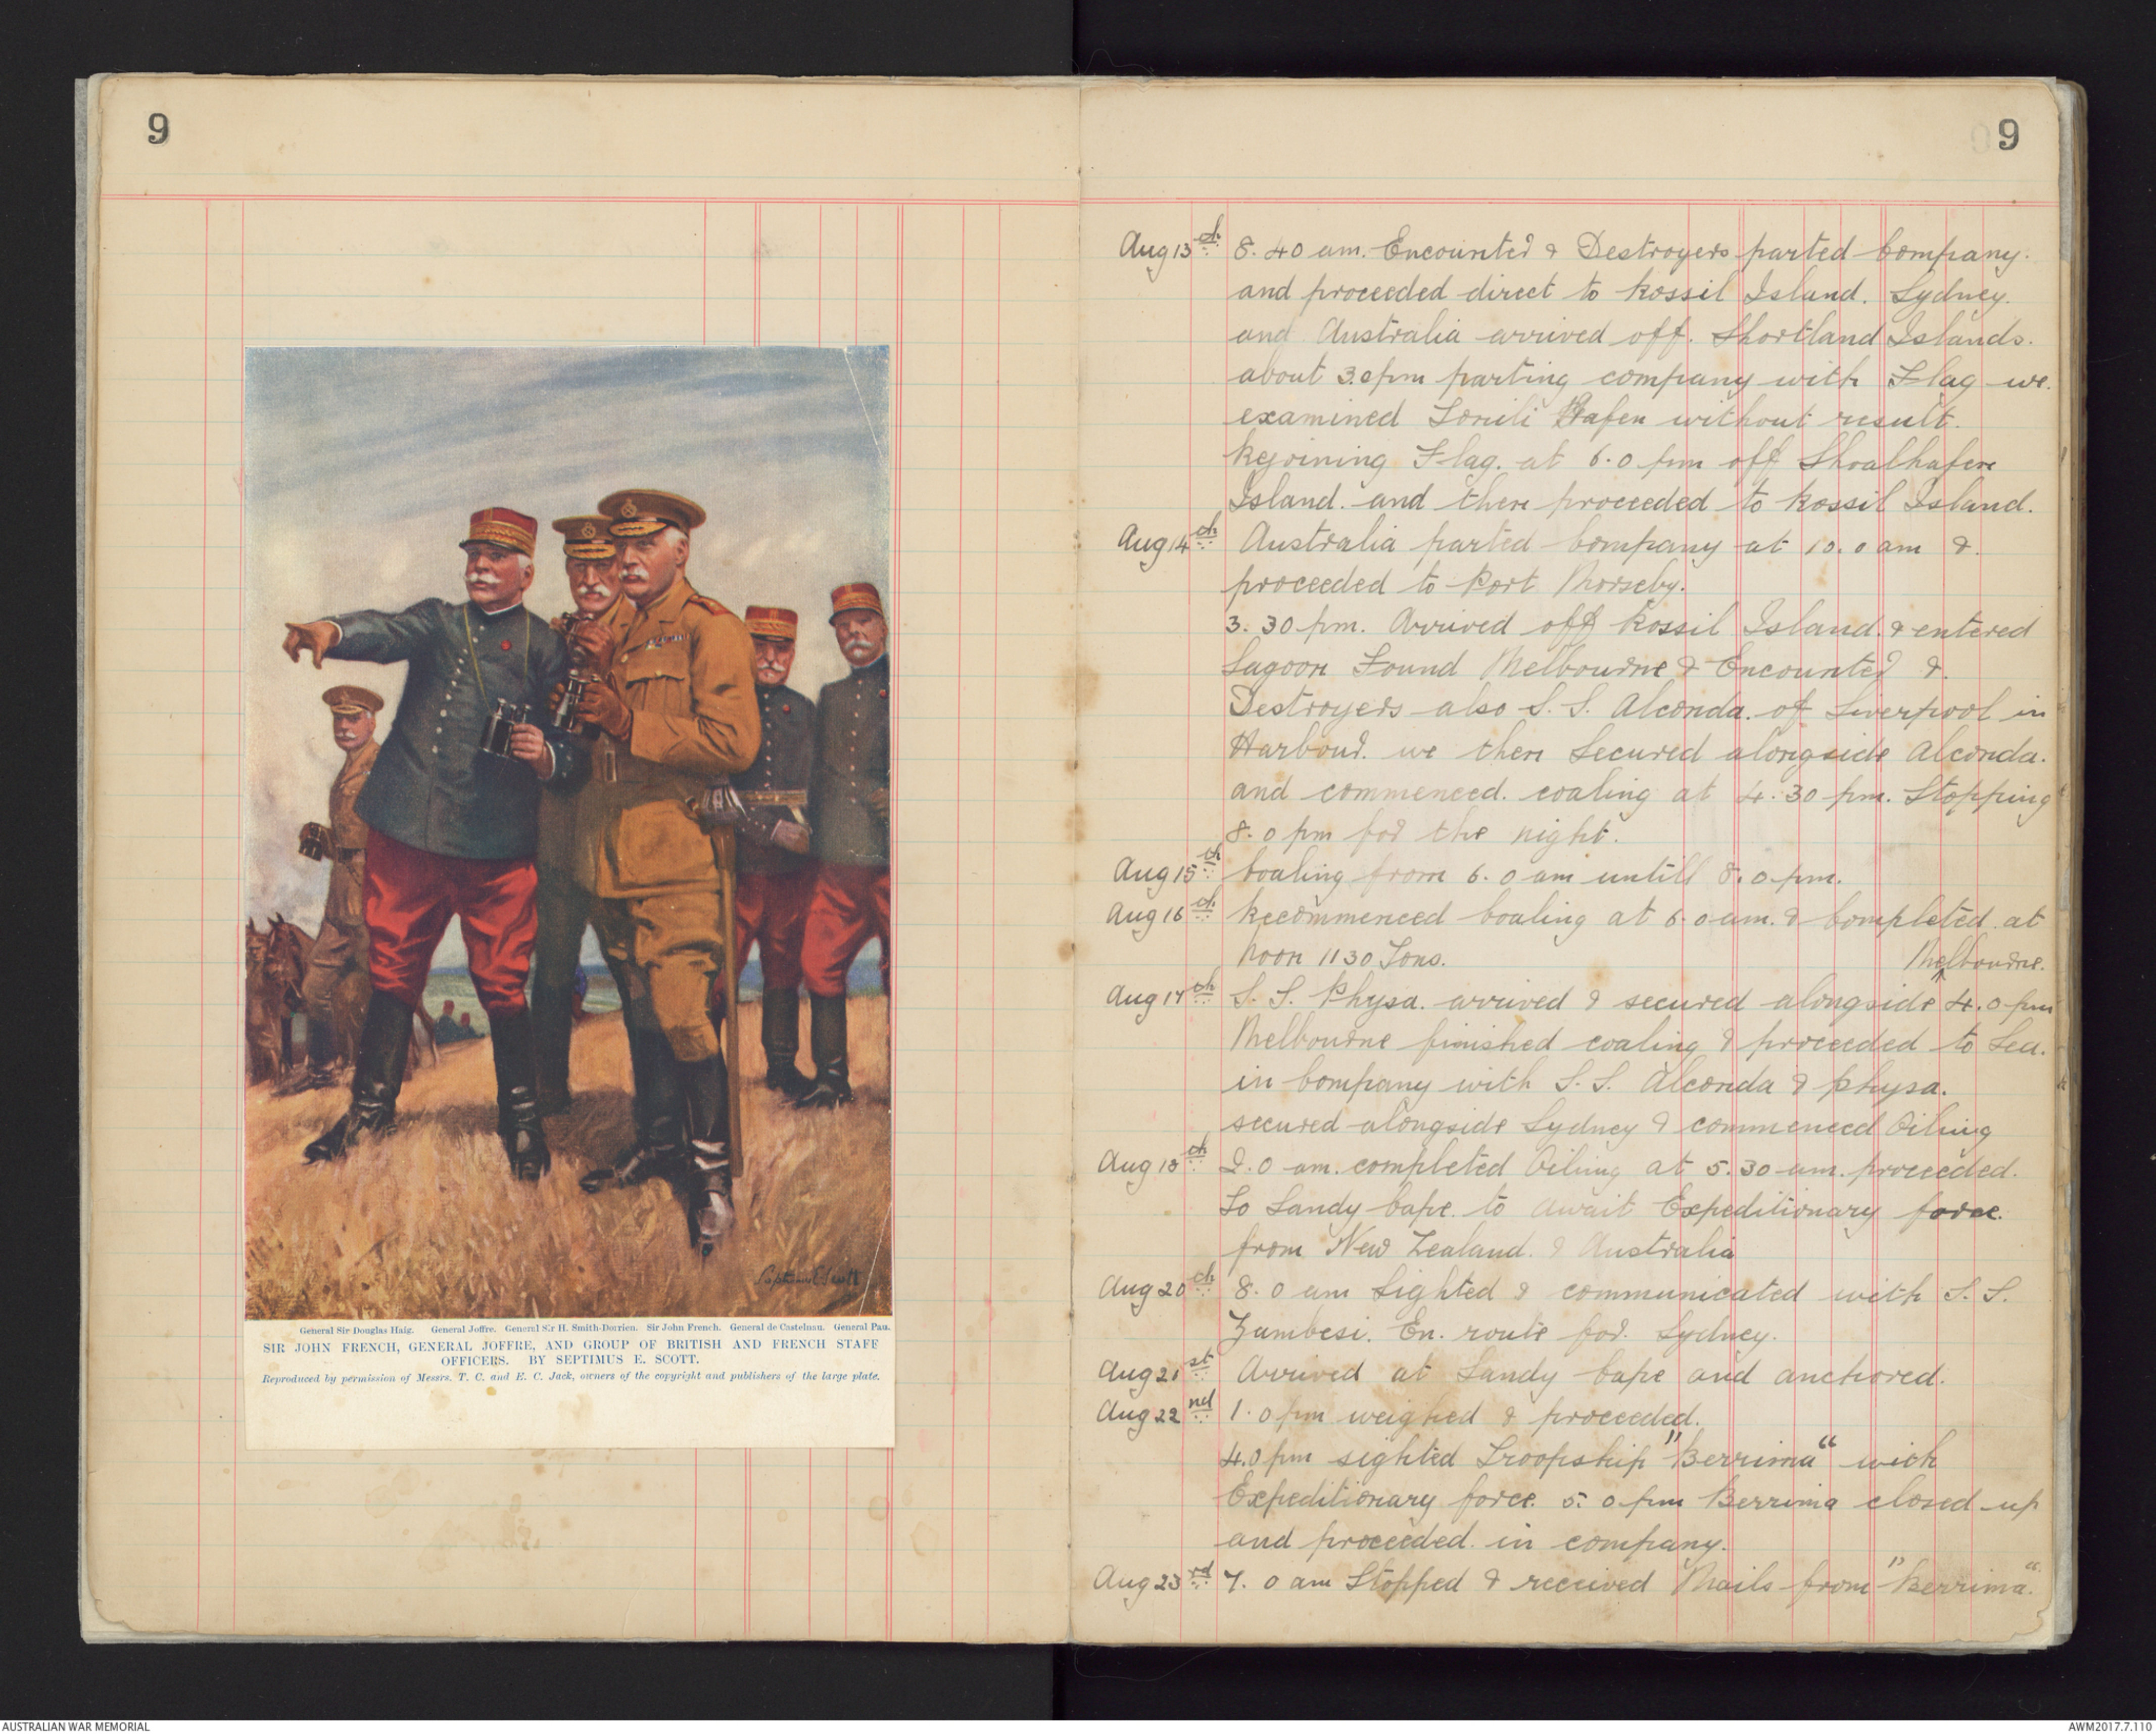 9
Septimus E Scott
General Sir Douglas Haig. General Joffre. General Sir H. Smith-Dorrien. Sir John French. General de Castelnau. General Pau.
SIR JOHN FRENCH, GENERAL JOFFRE, AND GROUP OF BRITISH AND FRENCH STAFF
OFFICERS. BY SEPTIMUS E. SCOTT.
Reproduced by permission of Messrs. T. C. and E. C. Jack, owners of the copyright and publishers of the large plate.
9
Aug 13th 8.40 am. Encounter & Destroyers parted Company.
and proceeded direct to Rossil Island. Sydney.
and Australia arrived off. Shortland Islands.
about 3.0 pm parting company with Flag we.
examined Hafen without result.
Rejoining Flag. at 6.0 pm off Shoalhafen
Island. and then proceeded to Rossil Island.
Aug 14th Australia parted Company at 10.0 am &.
proceeded to Port Morseby.
3.30 pm. Arrived off Rossil Island. & entered
Lagoon Found Melbourne & Encounter &.
Destroyers also S.S. Alconda. of Liverpool in
Harbour. we then Secured alongside Alconda.
and commenced. coaling at 4.30 pm. Stopping
8.0 pm for the night.
Aug 15th Coaling from 6.0 am untill 8.0 pm.
Aug 16th Recommenced Coaling at 6.0 am. & Completed at
Noon 1130 Tons.
Melbourne.
Aug 17th S.S. Physa. arrived & secured alongside ^ 4.0 pm
Melbourne finished coaling & proceeded to Sea.
in Company with S.S. Alconda & Physa.
secured alongside Sydney & commenced Oiling
Aug 18th 2.0 am. completed Oiling at 5.30 am. proceeded.
To Sandy Cape. to await Expeditionary force.
from New Zealand. & Australia
Aug 20th 8.0 am Sighted & communicated with S.S.
Zambesi. En. route for. Sydney.
Aug 21st Arrived at Sandy Cape and anchored.
Aug 22nd 1.0 pm weighed & proceeded.
4.0 pm sighted Troopship "Berrima" with
Expeditionary force. 5.0 pm Berrima closed up
and proceeded. in company.
Aug 23rd 7.0 am Stopped & received Mails from "Berrima".
AUSTRALIAN WAR MEMORIAL
AWM2017.7.110